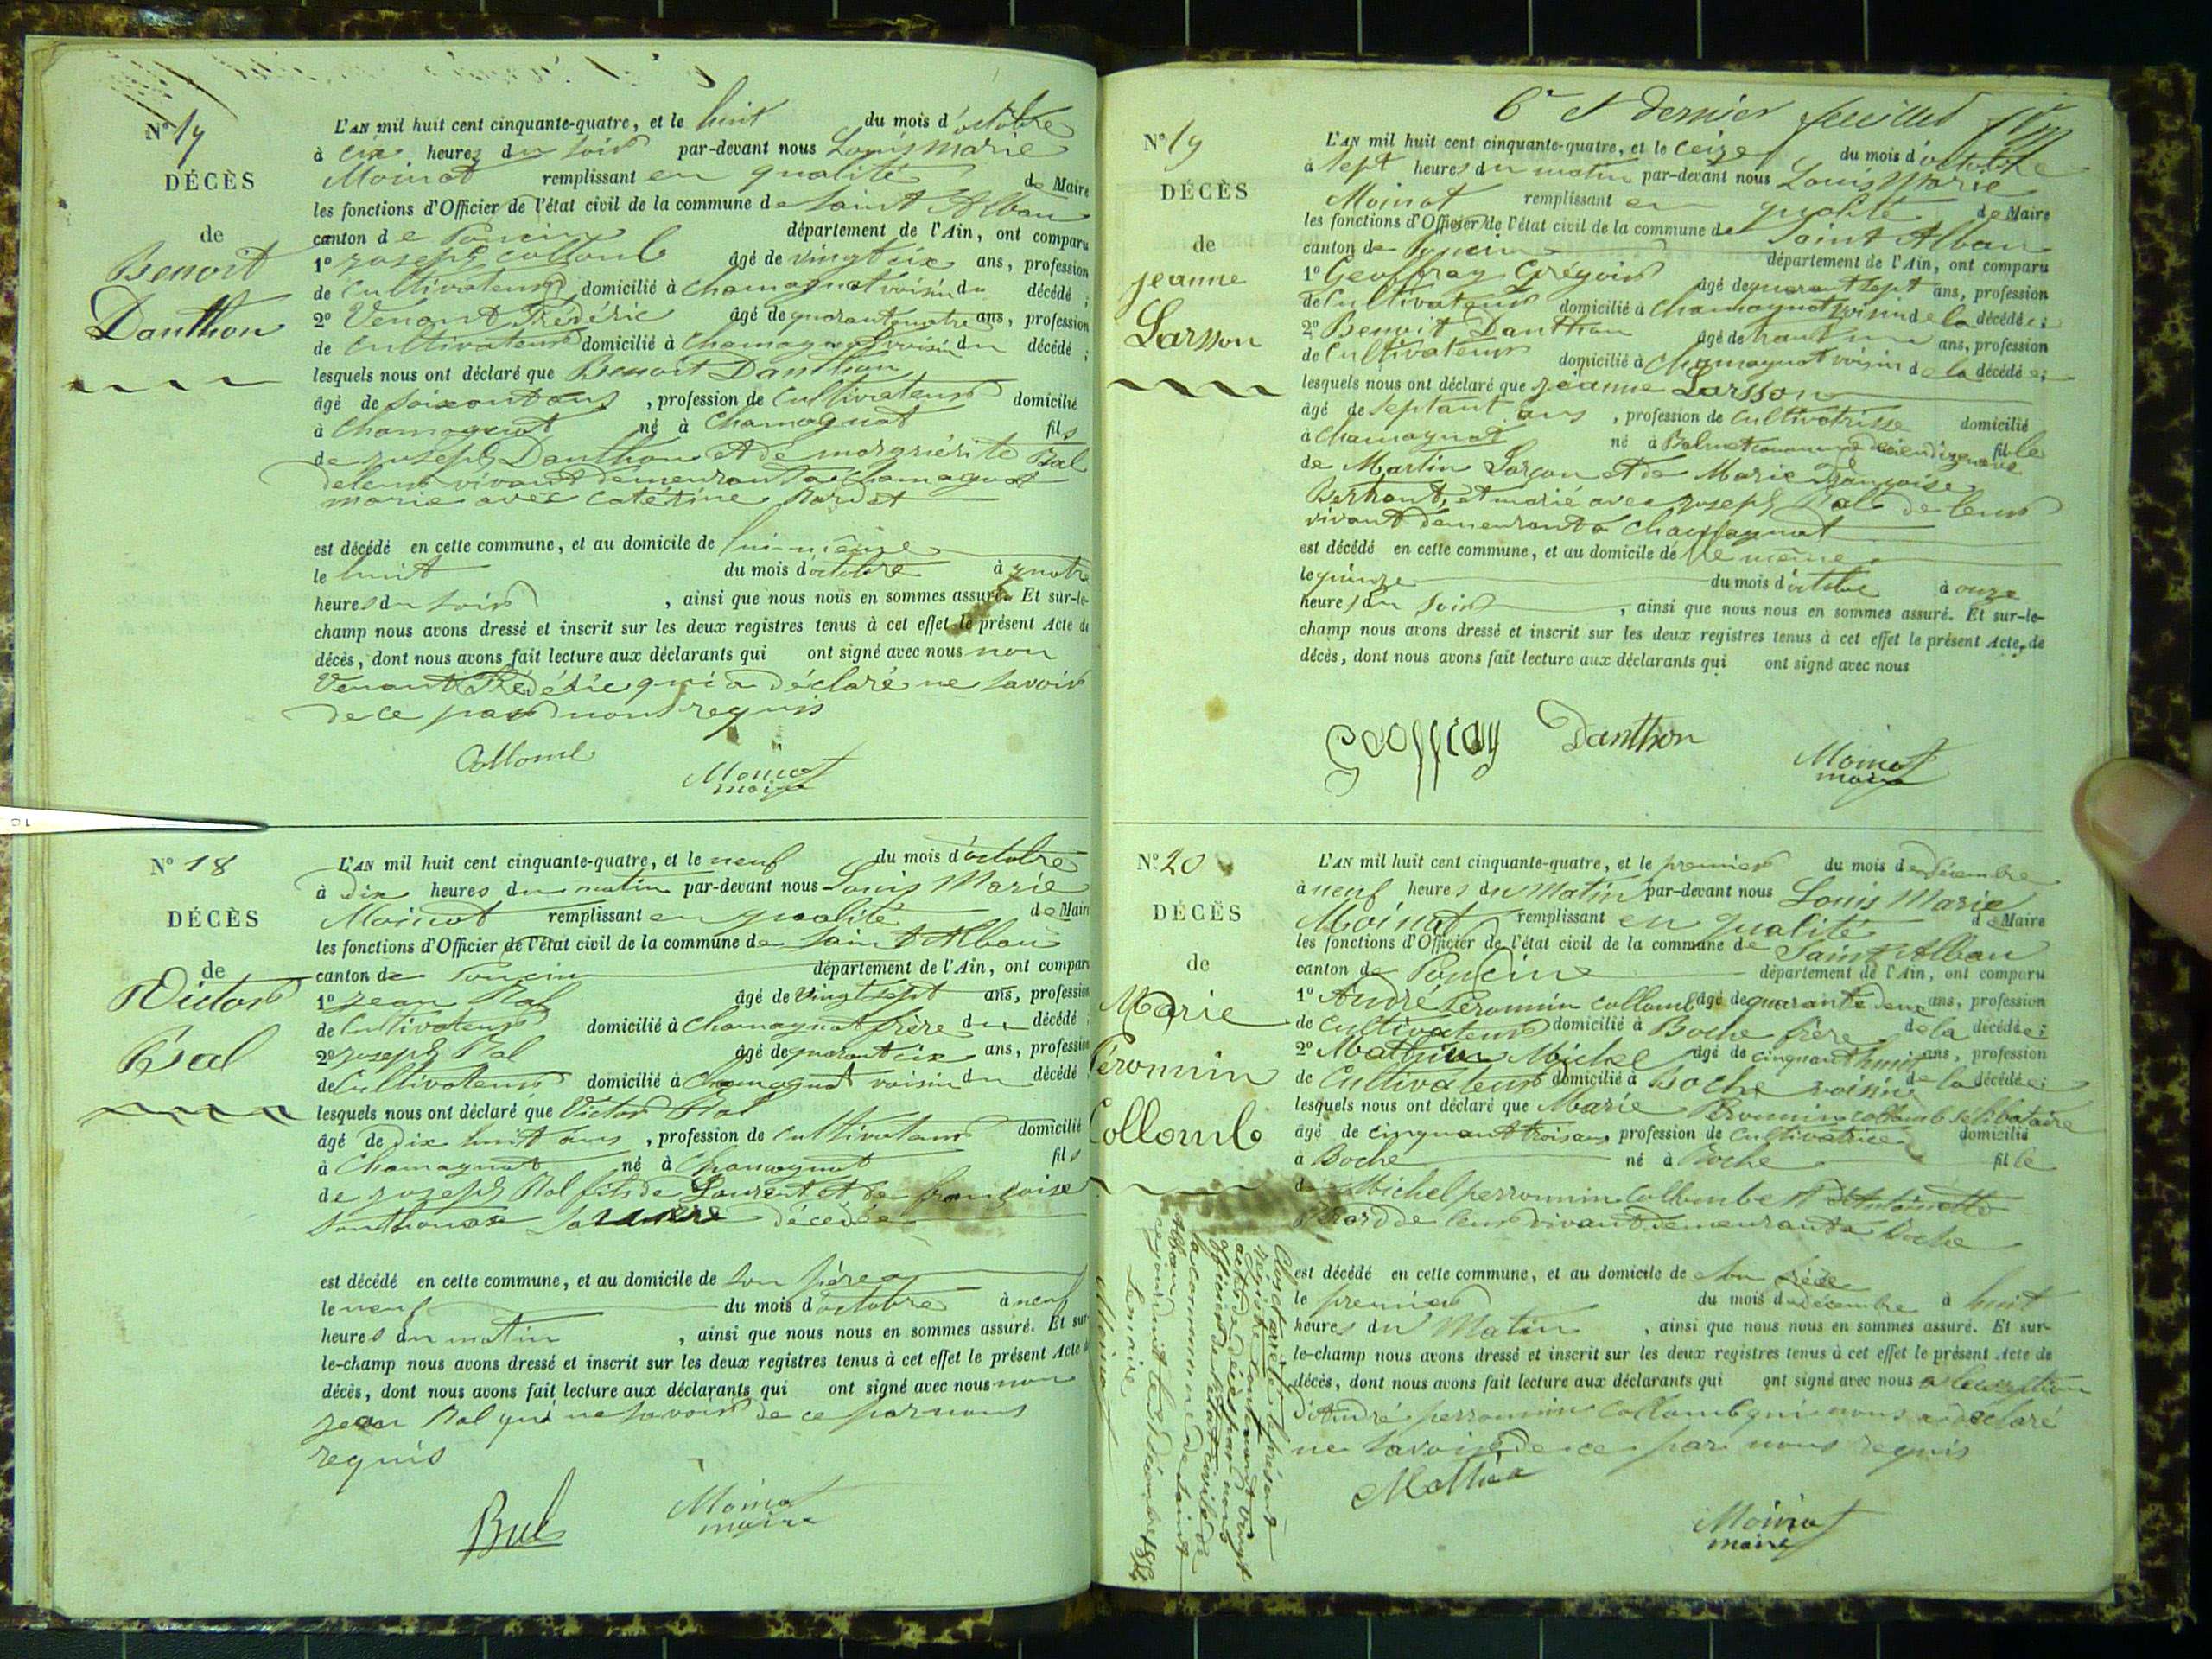 N° 17
DÉCÈS
de
Benoit
Danthon
L'AN mil huit cent cinquante-quatre, et le huit du mois d'octobre
à cix heures du soir par-devant nous Louis Marie
Moinat remplissant en qualité de Maire
les fonctions d'Officier de l'état civil de la commune de Saint Alban
canton de Poncin département de l'Ain, ont comparu
1° joseph collomb âgé de vingt cix ans, profession
de Cultivateur domicilié à chamagnat voisin du décédé ;
2° Venant Frédéric âgé de quarant quatre ans, profession
de Cultivateur domicilié à Chamagnat voisin du décédé ;
lesquels nous ont déclaré que Benoit Danthon
âgé de soixant ans , profession de Cultivateur domicilié
à Chamagnat né à Chamagnat fils
de joseph Danthon et de margriérite Bal
de leur vivant demeurant a Chamagnat
marie avec Catérine Bardet
est décédé en cette commune, et au domicile de lui même
le huit du mois d'octobre à quatre
heures du soir , ainsi que nous nous en sommes assuré. Et sur-le-
champ nous avons dressé et inscrit sur les deux registres tenus à cet effet le présent Acte de
décès, dont nous avons fait lecture aux déclarants qui ont signé avec nous non
Venant Frédéric qui a déclaré ne savoir
de ce par nous requis
Collomb
Moinat
maire
N° 18
DÉCÈS
de
Victor
Bal
L'AN mil huit cent cinquante-quatre, et le neuf du mois d'octobre
à dix heures du matin par-devant nous Louis Marie
Moinat remplissant en qualité de Maire
les fonctions d'Officier de l'état civil de la commune de Saint Alban
canton de Poncin département de l'Ain, ont comparu
1° jean Bal âgé de vingt sept ans, profession
de Cultivateur domicilié à Chamagnat frère du décédé ;
2° joseph Bal âgé de quarant cix ans, profession
de Cultivateur domicilié à Chamagnat voisin du décédé
lesquels nous ont déclaré que Victor Bal
âgé de dix huit ans , profession de Cultivateur domicilié
à Chamagnat né à Chamagnat fils
de joseph Bal fils de Laurent et de françoise
sa mère décédée
est décédé en cette commune, et au domicile de son père
le neuf du mois d'octobre à neuf
heures du matin , ainsi que nous nous en sommes assuré. Et sur
le-champ nous avons dressé et inscrit sur les deux registres tenus à cet effet le présent Acte de
décès, dont nous avons fait lecture aux déclarants qui ont signé avec nous non
jean Bal qui ne savoir de ce par nous
requis
Bal
Moinat
maire
6e et dernier feuillet
N° 19
DÉCÈS
de
jeanne
Larsson
L'AN mil huit cent cinquante-quatre, et le ceize du mois d'octobre
à sept heures du matin par-devant nous Louis Marie
Moinat remplissant en qualité de Maire
les fonctions d'Officier de l'état civil de la commune de Saint Alban
canton de Poncin département de l'Ain, ont comparu
1° Geoffray Grégoir âgé de quarant sept ans, profession
de Cultivateur domicilié à Chamagnat voisin de la décédée ;
2° Benoit Danthon âgé de trant un ans, profession
de Cultivateur domicilié à Chamagnat voisin de la décédée ;
lesquels nous ont déclaré que jeanne Larsson
âgé de septant ans , profession de Cultivatrisse domicilié
à Chamagnat né à Balmet commune de fille
de Martin Larçon et de Marie Françoise
et marié avec joseph Bal de leur
vivant demeurant a Chamagnat
est décédé en cette commune, et au domicile de le même
le quinze du mois d'octobre à onze
heures du soir , ainsi que nous nous en sommes assuré. Et sur-le-
champ nous avons dressé et inscrit sur les deux registres tenus à cet effet le présent Acte de
décès, dont nous avons fait lecture aux déclarants qui ont signé avec nous
Geoffray Danthon
Moinat
maire
N° 20
DÉCÈS
de
Marie
Péronnin
Collomb
L'AN mil huit cent cinquante-quatre, et le premier du mois de décembre
à neuf heures du Matin par-devant nous Louis Marie
Moinat remplissant en qualité de Maire
les fonctions d'Officier de l'état civil de la commune de Saint Alban
canton de Poncin département de l'Ain, ont comparu
1° André Peronnin collomb âgé de quarante deux ans, profession
de Cultivateur domicilié à Boche frère de la décédée ;
2° Mathieu Michel âgé de cinquant huit ans, profession
de Cultivateur domicilié à Boche voisin de la décédée ;
lesquels nous ont déclaré que Marie Peronnin collomb selibataire
âgé de cinquant trois ans profession de Cultivatrice domicilié
à Boche né à Boche fille
de Michel perronnin Collombe et d'Antoinette
de leur vivant demeurant a Boche
est décédé en cette commune, et au domicile de son frère
le premier du mois de décembre à huit
heures du Matin , ainsi que nous nous en sommes assuré. Et sur-
le-champ nous avons dressé et inscrit sur les deux registres tenus à cet effet le présent Acte de
décès, dont nous avons fait lecture aux déclarants qui ont signé avec nous a l'exception
d'André perronnin Collomb qui nous a déclaré
ne savoir de ce par nous requis
Mathieu
Moinat
maire
Clos et arrêté le présent
registre contenant vingt
actes de décès par nous
officier de l'état civile de
la commune de Saint
Alban
cejourd'hui trente un décembre 1854
Le maire
Moinat